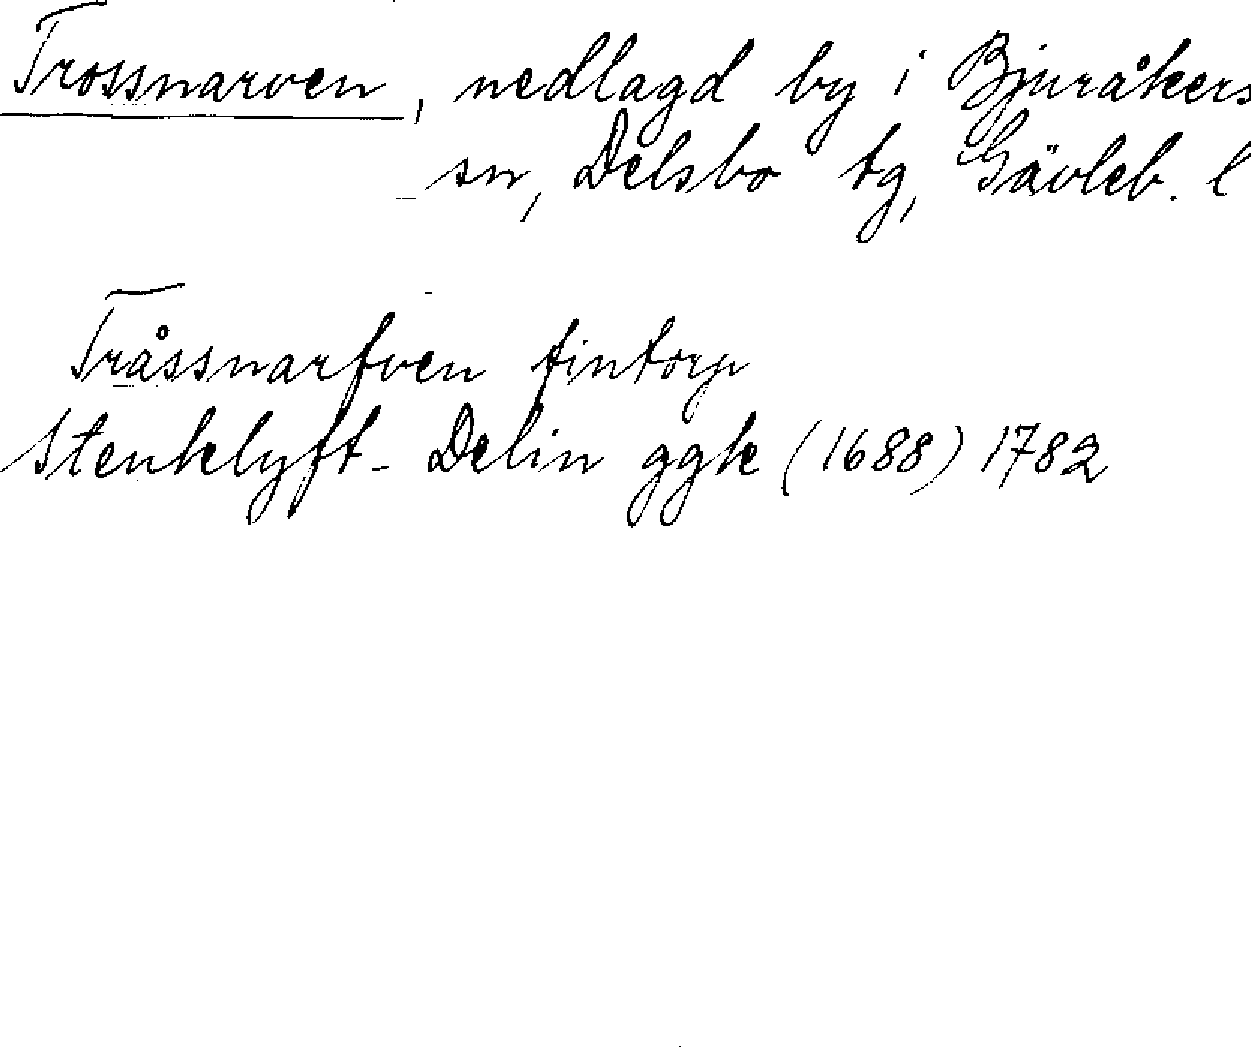 Trossnarven, nedlagd by i Bjuråkers
sn, Delsbo tg, Gävleb. l
Tråssnarfven fintorp
Stenklyft - Delin ggk (1688) 1782